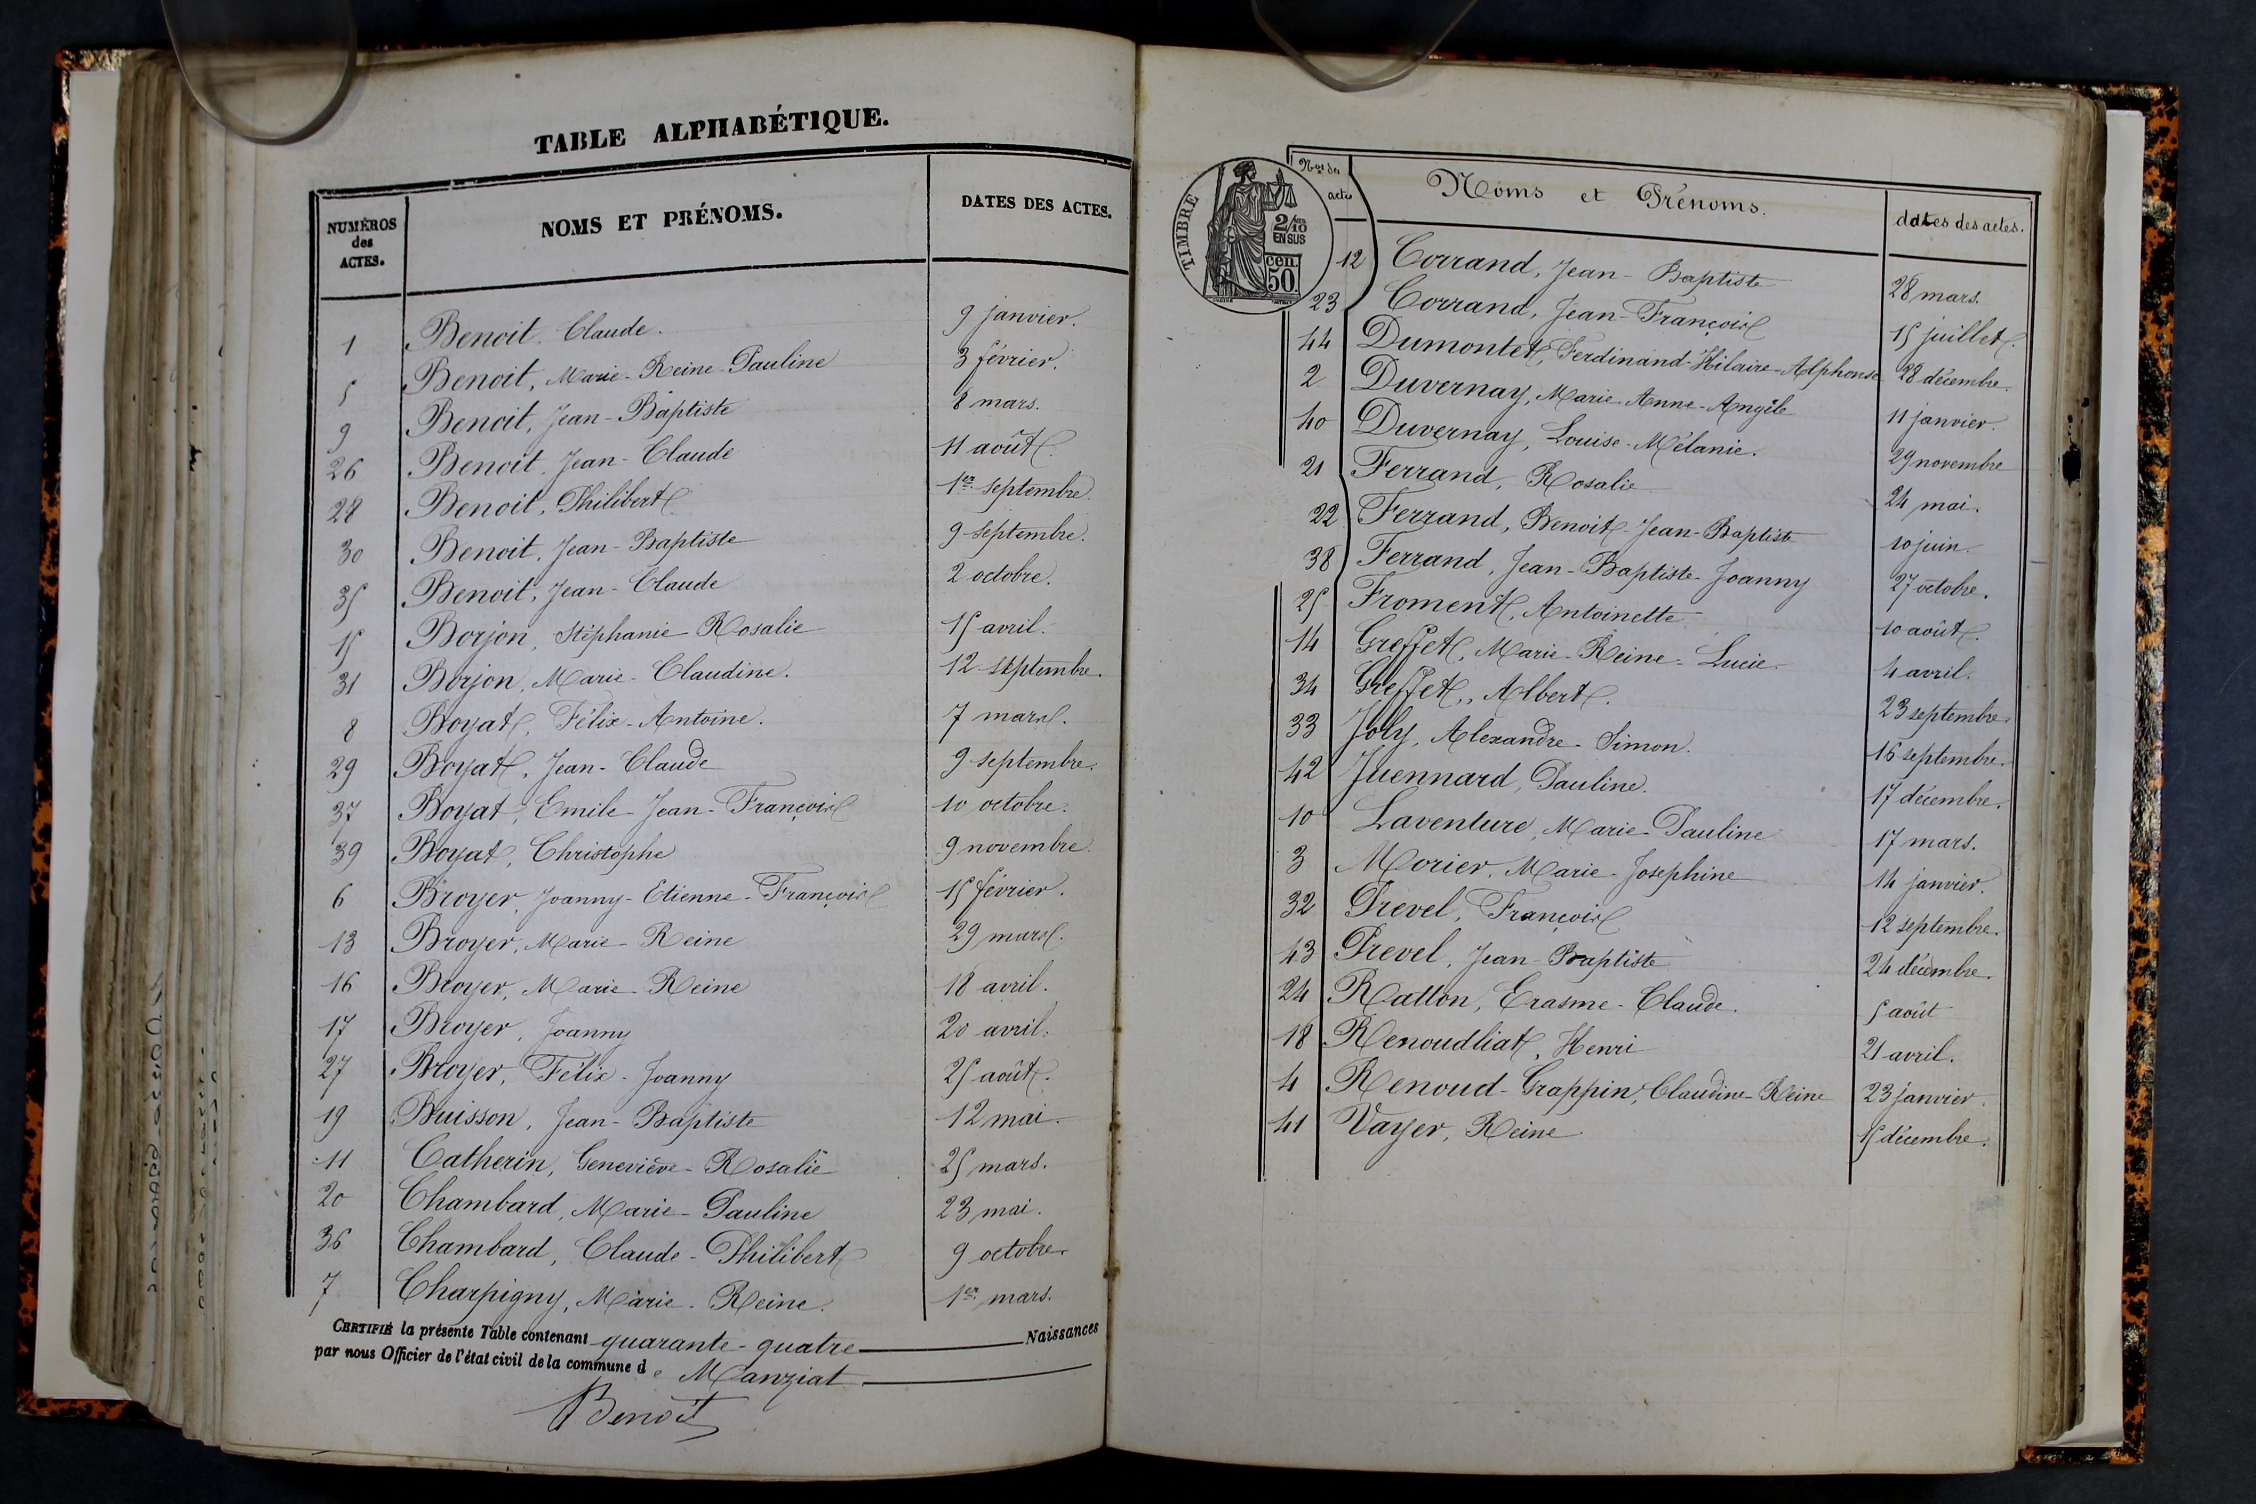 TABLE ALPHABÉTIQUE.
NUMÉROS des ACTES. NOMS ET PRÉNOMS. DATES DES ACTES.
1 Benoit. Claude. 9 janvier.
5 Benoit, Marie-Reine-Pauline 3 février.
9 Benoit, Jean-Baptiste 8 mars.
26 Benoit, Jean-Claude 11 août.
28 Benoit, Philibert 1er septembre.
30 Benoit, Jean-Baptiste 9 septembre.
35 Benoit, Jean-Claude 2 octobre.
15 Borjon, Stéphanie-Rosalie 15 avril.
31 Borjon, Marie-Claudine. 12 septembre.
8 Boyat, Félix-Antoine. 7 mars.
29 Boyat, Jean-Claude 9 septembre.
37 Boyat, Emile-Jean-François 10 octobre.
39 Boyat, Christophe 9 novembre.
6 Broyer, Joanny-Etienne-François 15 février.
13 Broyer, Marie-Reine 29 mars.
16 Broyer, Marie-Reine 18 avril.
17 Broyer, Joanny 20 avril.
27 Broyer, Félix-Joanny 25 août.
19 Buisson, Jean-Baptiste 12 mai.
11 Catherin, Geneviève-Rosalie 25 mars.
20 Chambard, Marie-Pauline 23 mai.
36 Chambard, Claude-Philibert 9 octobre.
7 Charpigny, Marie-Reine. 1er mars.
CERTIFIÉ la présente Table contenant quarante-quatre Naissances
par nous Officier de l'état civil de la commune de Manziat
Benoit
TIMBRE
2/10 EN SUS
50 cen.
Nos des actes Noms et Prénoms. dates des actes.
12 Corrand, Jean-Baptiste 28 mars.
23 Corrand, Jean-François 15 juillet.
44 Dumontet, Ferdinand-Hilaire-Alphonse 28 décembre.
2 Duvernay, Marie-Anne-Angèle 11 janvier.
40 Duvernay, Louise-Mélanie. 29 novembre
21 Ferrand, Rosalie 24 mai.
22 Ferrand, Benoit Jean-Baptiste 10 juin.
38 Ferrand, Jean-Baptiste-Joanny 27 octobre.
25 Froment, Antoinette 10 août.
14 Greffet, Marie-Reine-Lucie. 4 avril.
34 Greffet, Albert. 23 septembre.
33 Joly, Alexandre-Simon. 16 septembre.
42 Juennard, Pauline. 17 décembre.
10 Laventure, Marie-Pauline 17 mars.
3 Morier, Marie-Josephine 14 janvier.
32 Prevel, François 12 septembre.
43 Prevel, Jean-Baptiste 24 décembre.
24 Ratton, Erasme-Claude. 5 août
18 Renoudliat, Henri 21 avril.
4 Renoud-Grappin, Claudine-Reine 23 janvier.
41 Vayer, Reine 15 décembre.